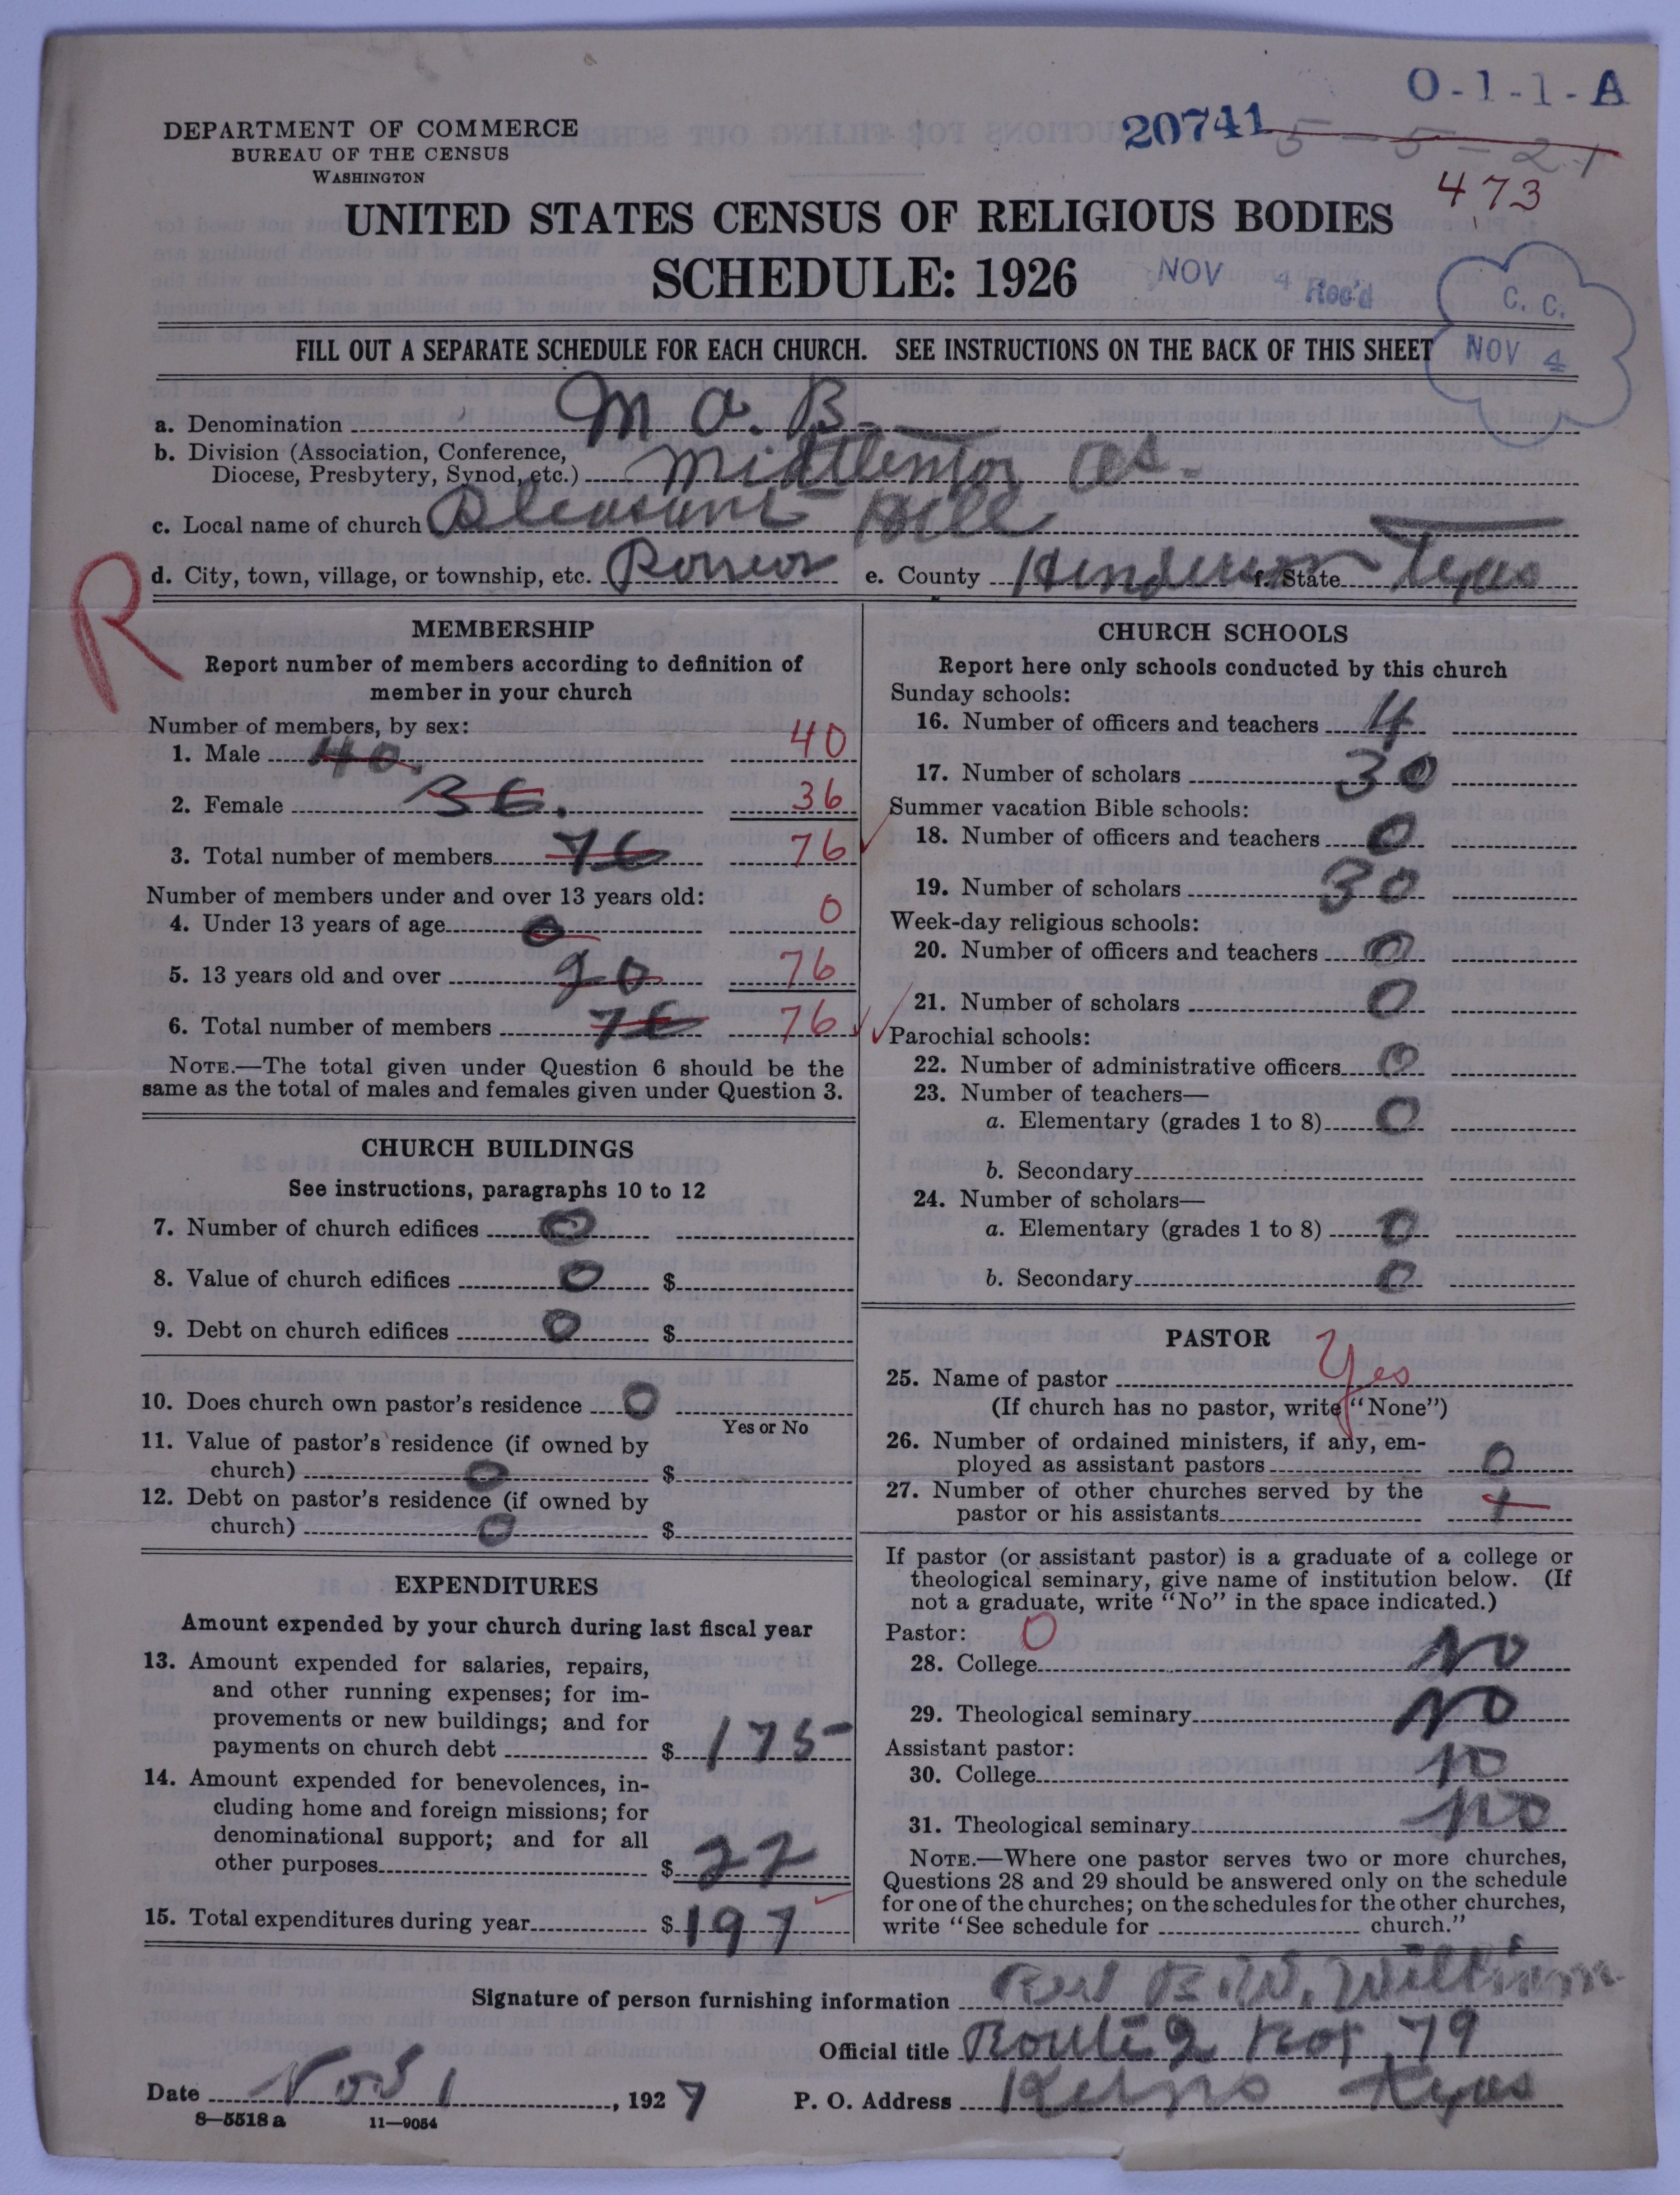 O-1-1-A
DEPARTMENT OF COMMERCE
BUREAU OF THE CENSUS
WASHINGTON
20741 5-5-21
473
UNITED STATES CENSUS OF RELIGIOUS BODIES
SCHEDULE: 1926
NOV 4 Rec'd
C. C.
NOV 4
FILL OUT A SEPARATE SCHEDULE FOR EACH CHURCH. SEE INSTRUCTIONS ON THE BACK OF THIS SHEET
a. Denomination M a. B.
b. Division (Association, Conference,
Diocese, Presbytery, Synod, etc.) as.
c. Local name of church Pleasant Hill
d. City, town, village, or township, etc. e. County Henderson f. State Texas
R
MEMBERSHIP
Report number of members according to definition of
member in your church
Number of members, by sex:
1. Male 40. 40
2. Female 36. 36
3. Total number of members 76 76
Number of members under and over 13 years old:
4. Under 13 years of age 0 0
5. 13 years old and over 20 76
6. Total number of members 76 76
NOTE.—The total given under Question 6 should be the
same as the total of males and females given under Question 3.
CHURCH BUILDINGS
See instructions, paragraphs 10 to 12
7. Number of church edifices 0
8. Value of church edifices 0 $
9. Debt on church edifices 0 $
10. Does church own pastor's residence 0
Yes or No
11. Value of pastor's residence (if owned by
church) 0 $
12. Debt on pastor's residence (if owned by
church) 0 $
EXPENDITURES
Amount expended by your church during last fiscal year
13. Amount expended for salaries, repairs,
and other running expenses; for im-
provements or new buildings; and for
payments on church debt $ 175-
14. Amount expended for benevolences, in-
cluding home and foreign missions; for
denominational support; and for all
other purposes $ 22
15. Total expenditures during year $ 197
CHURCH SCHOOLS
Report here only schools conducted by this church
Sunday schools:
16. Number of officers and teachers 4
17. Number of scholars 30
Summer vacation Bible schools:
18. Number of officers and teachers 0
19. Number of scholars 30
Week-day religious schools:
20. Number of officers and teachers 0
21. Number of scholars 0
Parochial schools:
22. Number of administrative officers 0
23. Number of teachers—
a. Elementary (grades 1 to 8) 0
b. Secondary
24. Number of scholars—
a. Elementary (grades 1 to 8) 0
b. Secondary 0
PASTOR
25. Name of pastor Yes
(If church has no pastor, write "None")
26. Number of ordained ministers, if any, em-
ployed as assistant pastors 0
27. Number of other churches served by the
pastor or his assistants 1
If pastor (or assistant pastor) is a graduate of a college or
theological seminary, give name of institution below. (If
not a graduate, write "No" in the space indicated.)
Pastor: 0
28. College No
29. Theological seminary No
Assistant pastor:
30. College no
31. Theological seminary no
NOTE.—Where one pastor serves two or more churches,
Questions 28 and 29 should be answered only on the schedule
for one of the churches; on the schedules for the other churches,
write "See schedule for church."
Signature of person furnishing information B. W.
Official title Route 2 Box 79
Date 1, 1927 P. O. Address Kerns texas
8—5518 a 11—9054